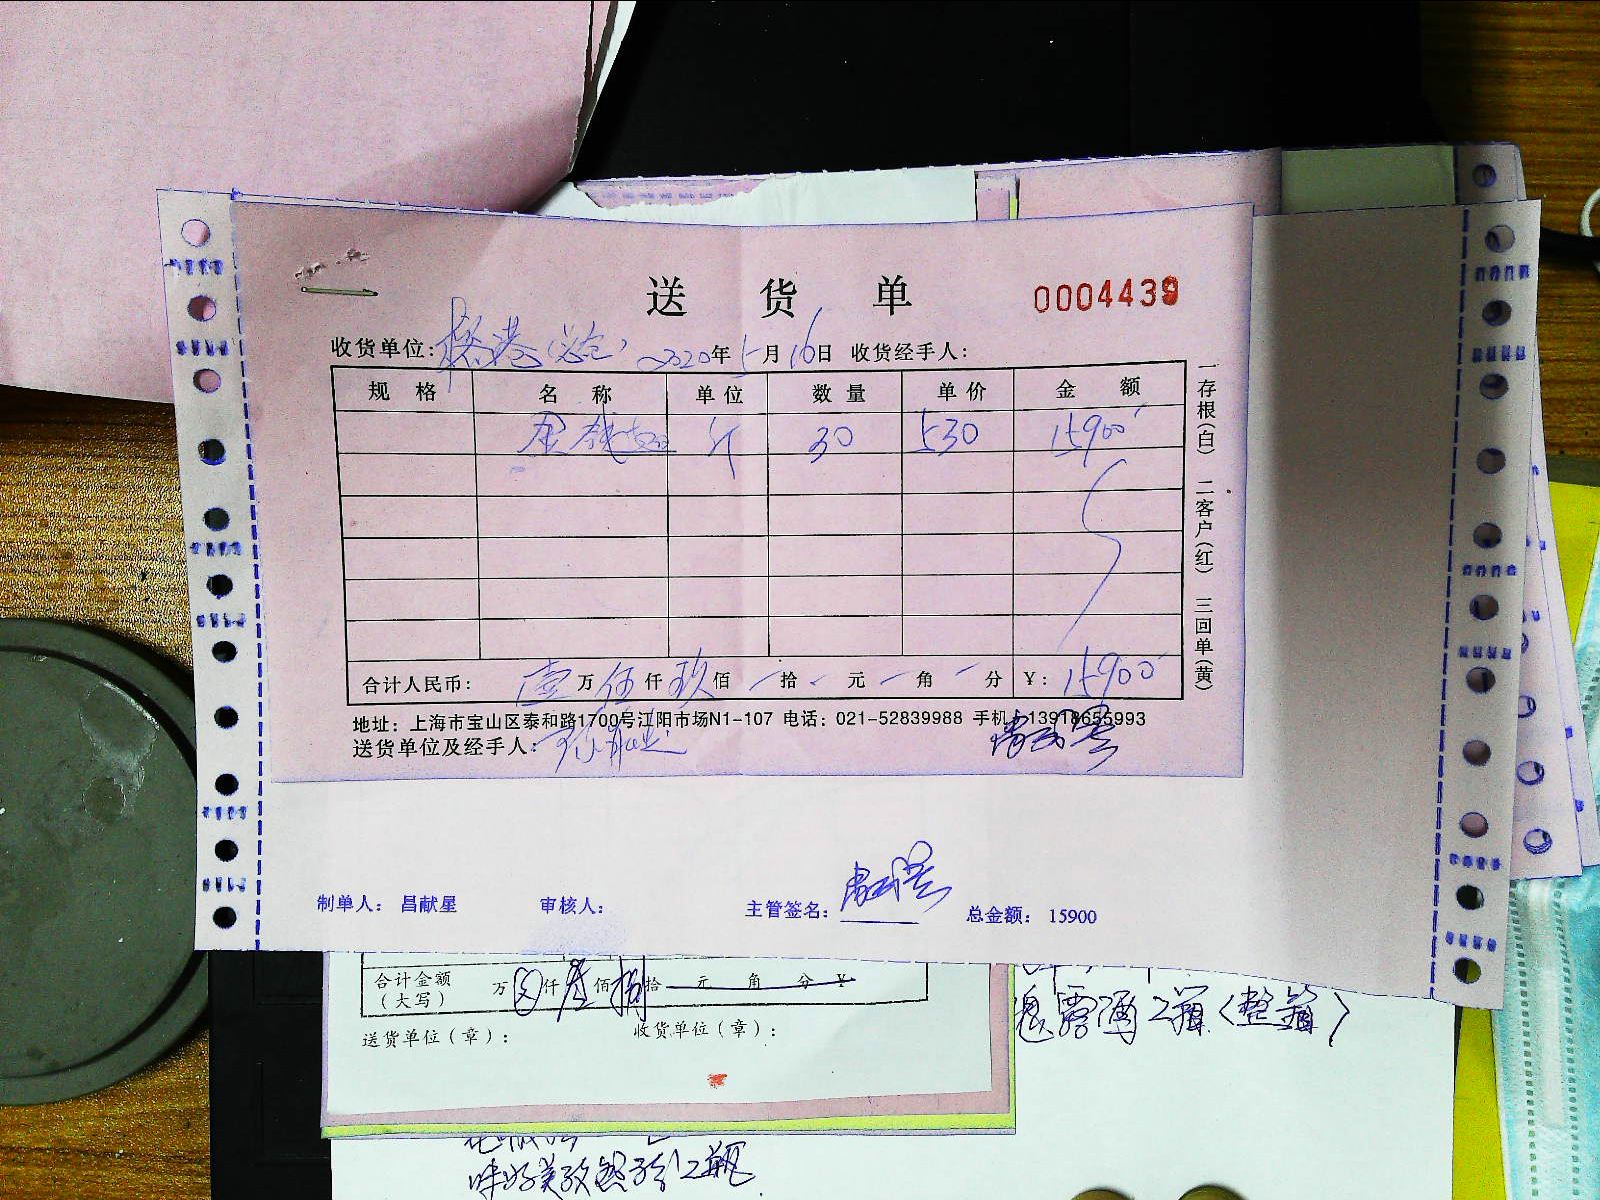 送货单 0004439
收货单位： 2020年5月16日 收货经手人：
规格 名称 单位 数量 单价 金额
金钱 斤 30 530 15900
合计人民币： 壹万伍仟玖佰 拾 元 角 分 ￥： 15900
地址：上海市宝山区泰和路1700号江阳市场N1-107 电话：021-52839988 手机：13918655993
送货单位及经手人：
一存根(白) 二客户(红) 三回单(黄)
制单人： 昌献星 审核人： 主管签名： 总金额： 15900
合计金额（大写） 万 仟叁佰 拾 元 角 分 ￥
送货单位（章）： 收货单位（章）：
2箱（整箱）
味好美 2瓶